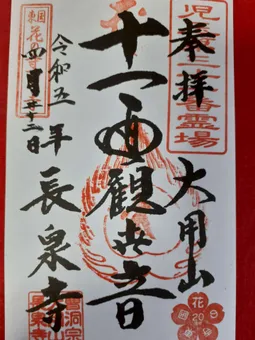 児玉三十三番霊場
奉拝
大用山
十一面觀世音
長泉寺
令和五年
四月二十二日
東国花の寺
花
20